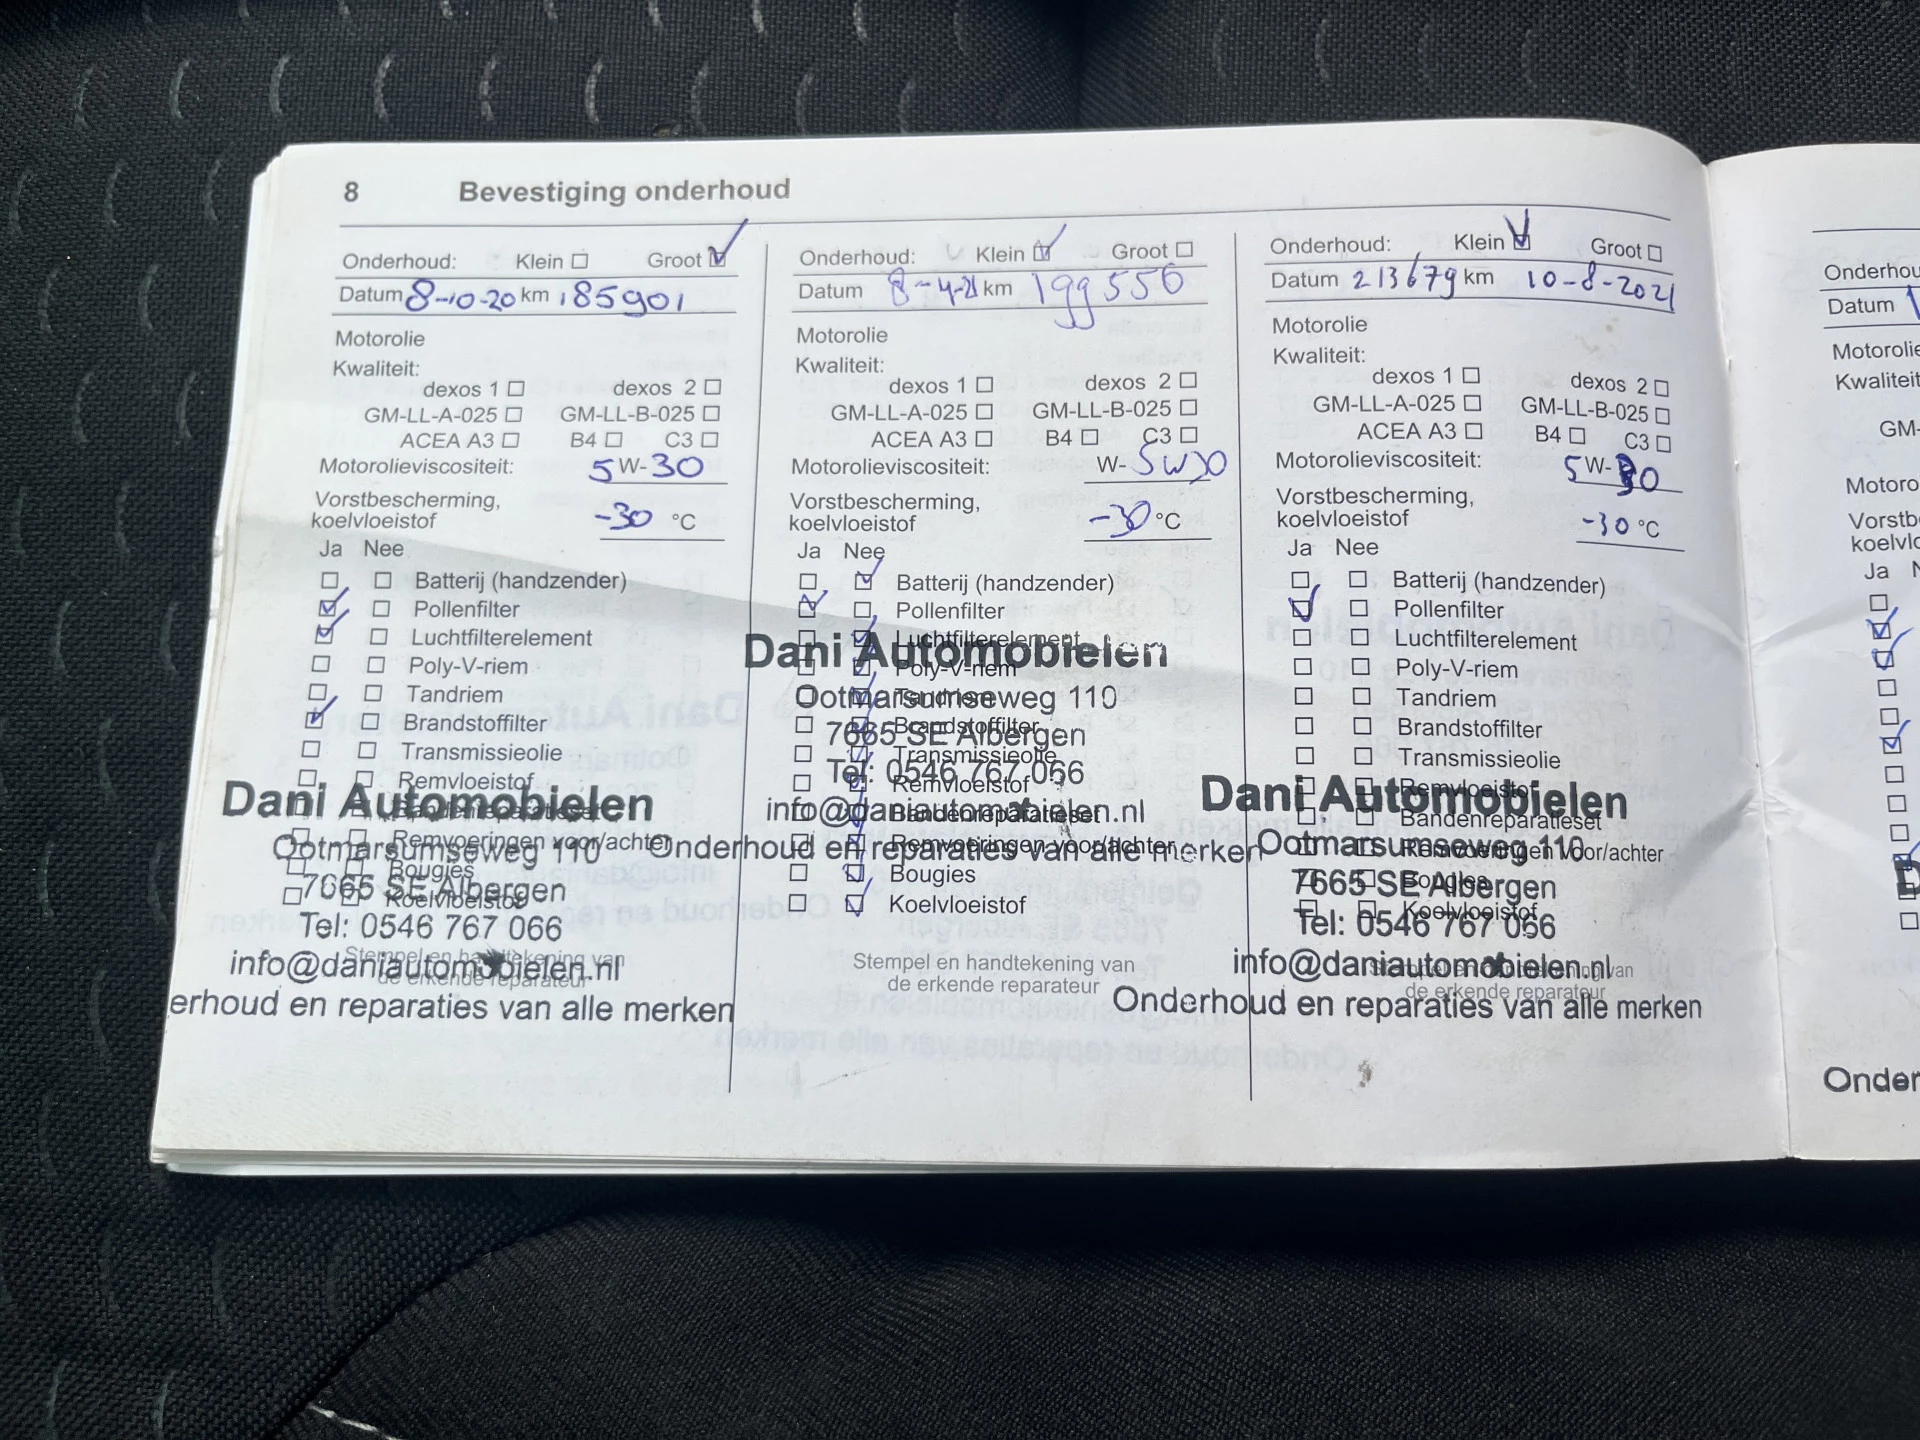 8 Bevestiging onderhoud
Onderhoud: Klein Groot
Datum 8-10-20 km 185901
Motorolie
Kwaliteit:
dexos 1 dexos 2
GM-LL-A-025 GM-LL-B-025
ACEA A3 B4 C3
Motorolieviscositeit: 5 W-30
Vorstbescherming,
koelvloeistof -30 °C
Ja Nee
Batterij (handzender)
Pollenfilter
Luchtfilterelement
Poly-V-riem
Tandriem
Brandstoffilter
Transmissieolie
Remvloeistof
Bandenreparatieset
Remvoeringen voor/achter
Bougies
Koelvloeistof
Stempel en handtekening van
de erkende reparateur
Dani Automobielen
Ootmarsumseweg 110
7665 SE Albergen
Tel: 0546 767 066
info@daniautomobielen.nl
erhoud en reparaties van alle merken
Onderhoud: Klein Groot
Datum 8-4-21 km 199556
Motorolie
Kwaliteit:
dexos 1 dexos 2
GM-LL-A-025 GM-LL-B-025
ACEA A3 B4 C3
Motorolieviscositeit: W- 5W30
Vorstbescherming,
koelvloeistof -30 °C
Ja Nee
Batterij (handzender)
Pollenfilter
Luchtfilterelement
Poly-V-riem
Tandriem
Brandstoffilter
Transmissieolie
Remvloeistof
Bandenreparatieset
Remvoeringen voor/achter
Bougies
Koelvloeistof
Stempel en handtekening van
de erkende reparateur
Dani Automobielen
Ootmarsumseweg 110
7665 SE Albergen
Tel: 0546 767 066
info@daniautomobielen.nl
Onderhoud en reparaties van alle merken
Onderhoud: Klein Groot
Datum 213679 km 10-8-2021
Motorolie
Kwaliteit:
dexos 1 dexos 2
GM-LL-A-025 GM-LL-B-025
ACEA A3 B4 C3
Motorolieviscositeit: 5 W-30
Vorstbescherming,
koelvloeistof -30 °C
Ja Nee
Batterij (handzender)
Pollenfilter
Luchtfilterelement
Poly-V-riem
Tandriem
Brandstoffilter
Transmissieolie
Remvloeistof
Bandenreparatieset
Remvoeringen voor/achter
Bougies
Koelvloeistof
Stempel en handtekening van
de erkende reparateur
Dani Automobielen
Ootmarsumseweg 110
7665 SE Albergen
Tel: 0546 767 066
info@daniautomobielen.nl
Onderhoud en reparaties van alle merken
Onderhou
Datum
Motorolie
Kwaliteit
GM-
Motoro
Vorstb
koelvlo
Ja N
D
Onder